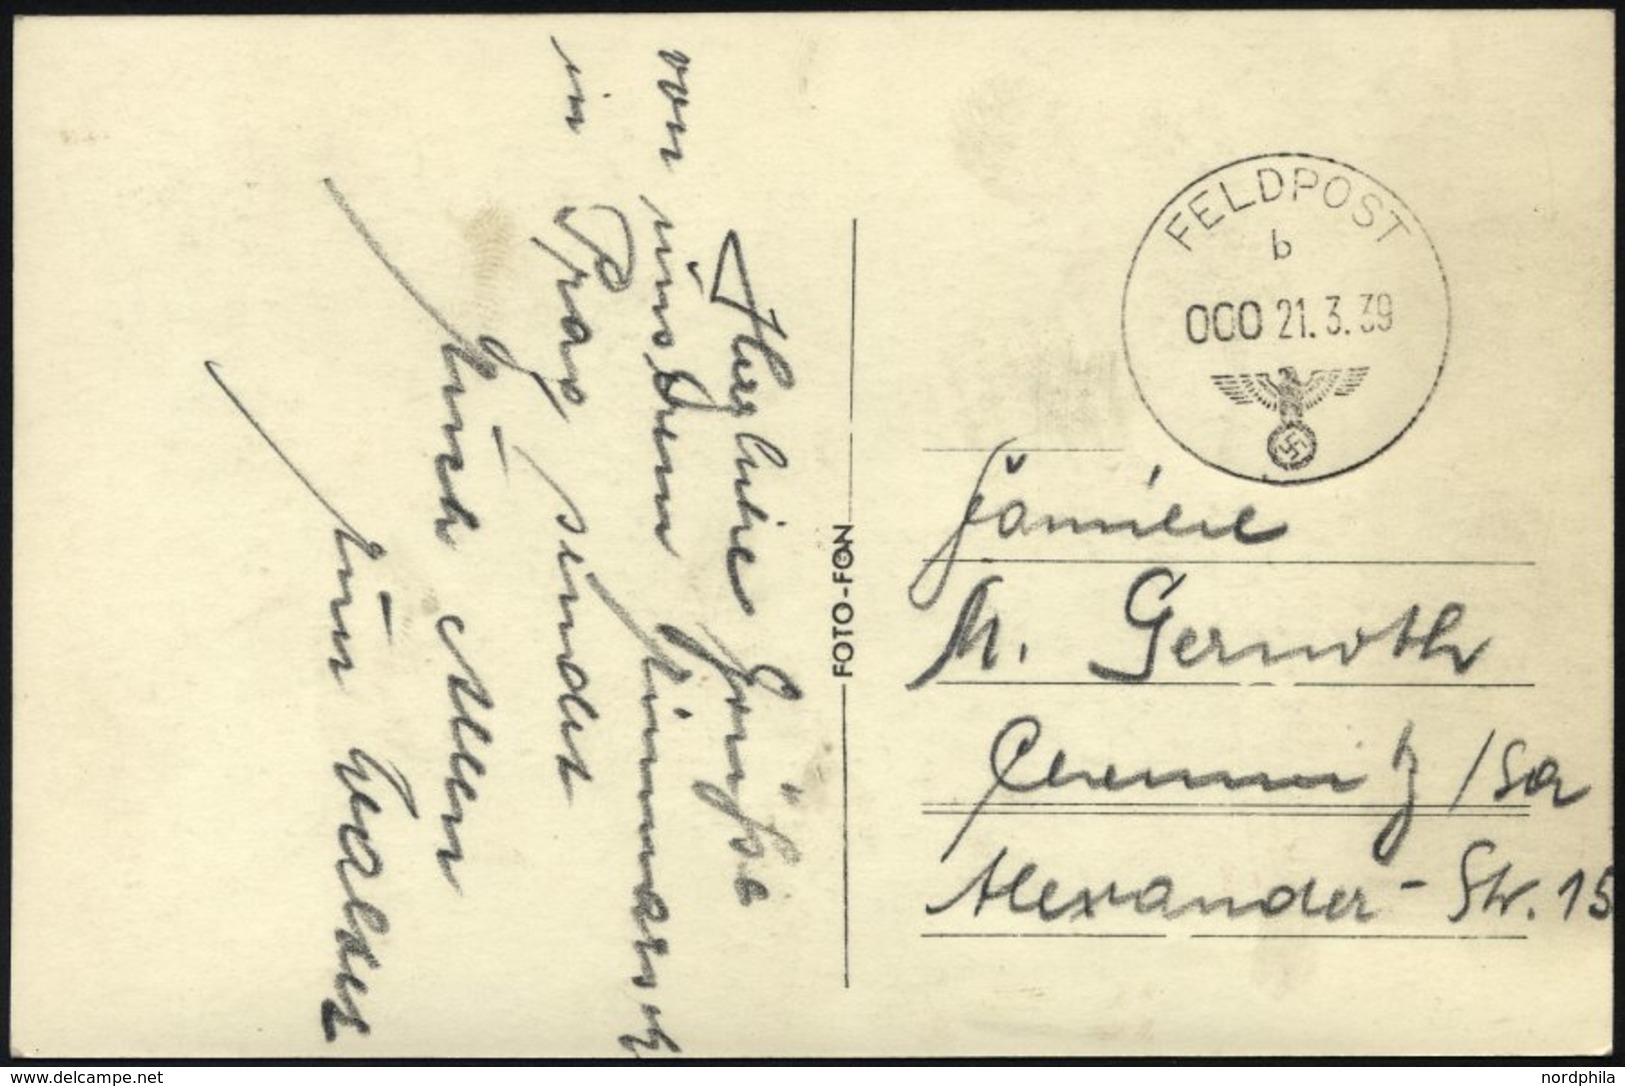 Herzliche Grüße
von unserem Einmarsch
in Prag sendet
Euch Allen
Euer Walter
FOTO-FON
FELDPOST
b
000 21.3.39
Familie
M. Gernoth
Chemnitz /Sa
Alexander-Str. 15
www.delcampe.net
nordphila